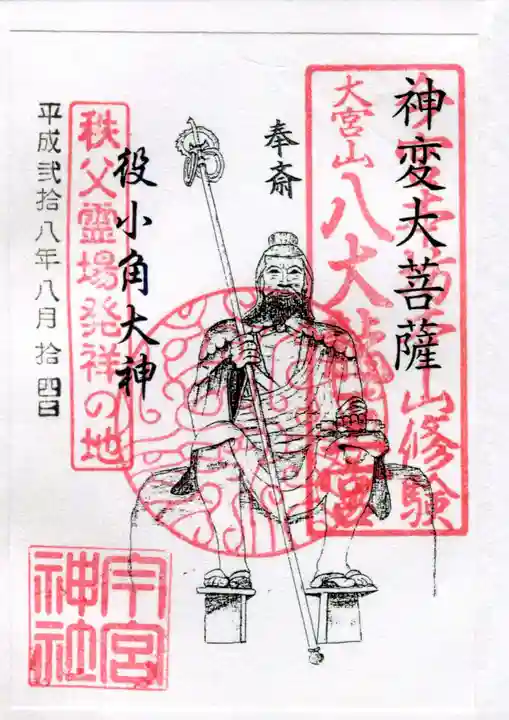 神変大菩薩
山修験
大宮山
八大龍王宮
奉斎
役小角大神
秩父霊場発祥の地
平成弐拾八年八月拾四日
今宮神社